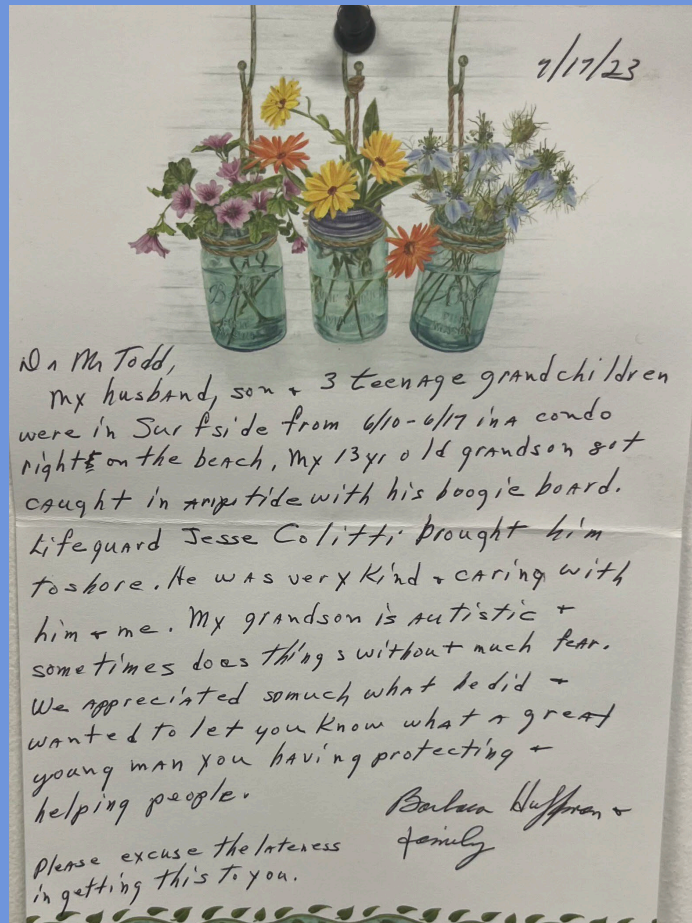 7/17/23
Dr Mr Todd,
My husband, son + 3 teenage grandchildren
were in Surfside from 6/10-6/17 in a condo
right on the beach, My 13 yr old grandson got
caught in a riptide with his boogie board.
Lifeguard Jesse Colitti brought him
to shore. He was very kind + caring with
him + me. My grandson is autistic +
sometimes does things without much fear.
We appreciated so much what he did +
wanted to let you know what a great
young man you having protecting +
helping people.
Barbara Huffman +
family
Please excuse the lateness
in getting this to you.